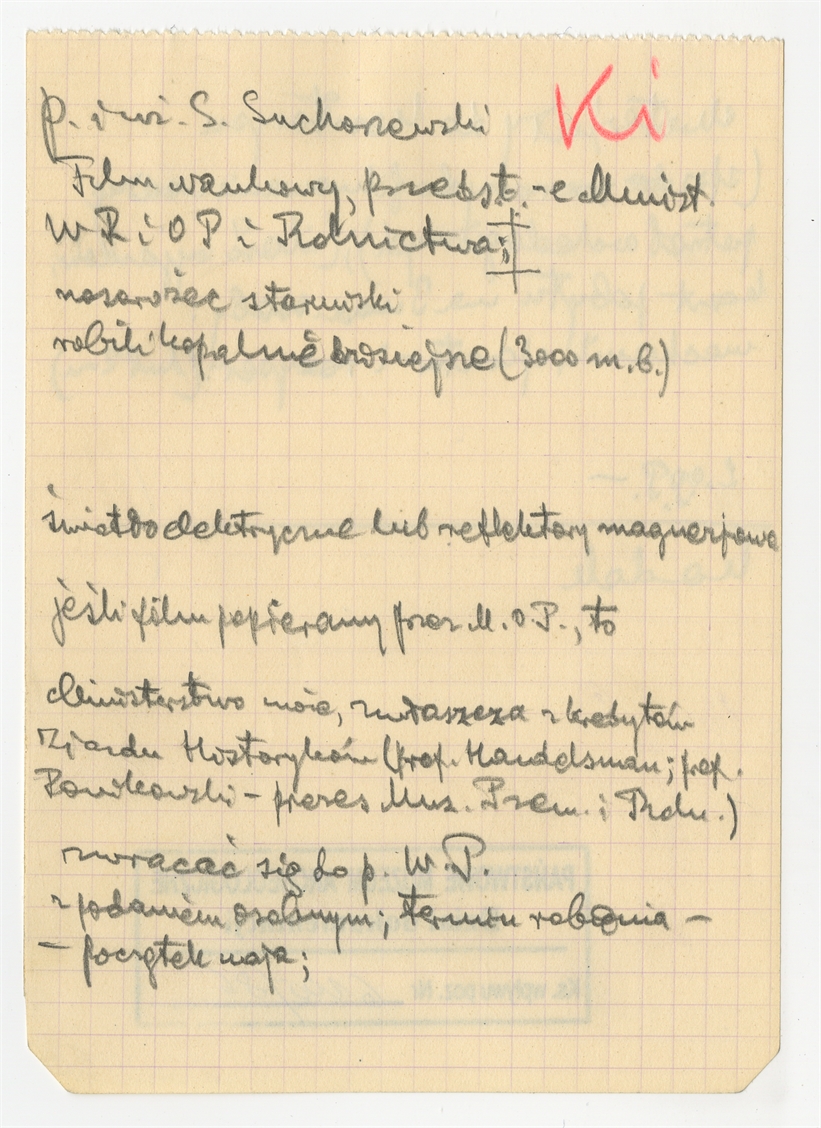 Ki
p. inż. S. Suchorzewski
Film naukowy, przedst. -e Minist.
W R i O P i Rolnictwa;
nosorożec staruński
robili kopalnie dzisiejsze (3000 m.b.)
światło elektryczne lub reflektory magnezjowe
jeśli film popierany przez M.O.P., to
Ministerstwo może, zwłaszcza z kredytów
Zjazdu Historyków (prof. Handelsman; prof.
Ponikowski - prezes Muz. Przem. i Roln.)
zwracać się do p. W.P.
z podaniem osobnym; termin robienia -
- początek maja;